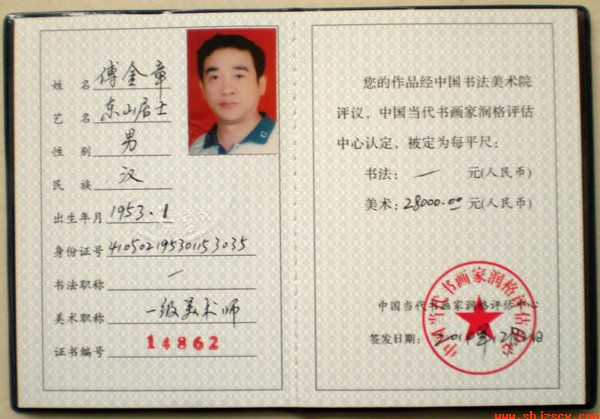 姓 名 傅金章
艺 名 东山居士
性 别 男
民 族 汉
出生年月 1953.1
身份证号 410502195301153035
书法职称 一
美术职称 一级美术师
证书编号 14862
您的作品经中国书法美术院
评议，中国当代书画家润格评估
中心认定，被定为每平尺：
书法：一 元(人民币)
美术：28000.00 元(人民币)
中国当代书画家润格评估中心
签发日期：2010年12月
中国当代书画家润格评估中心
www.shjzscx.com